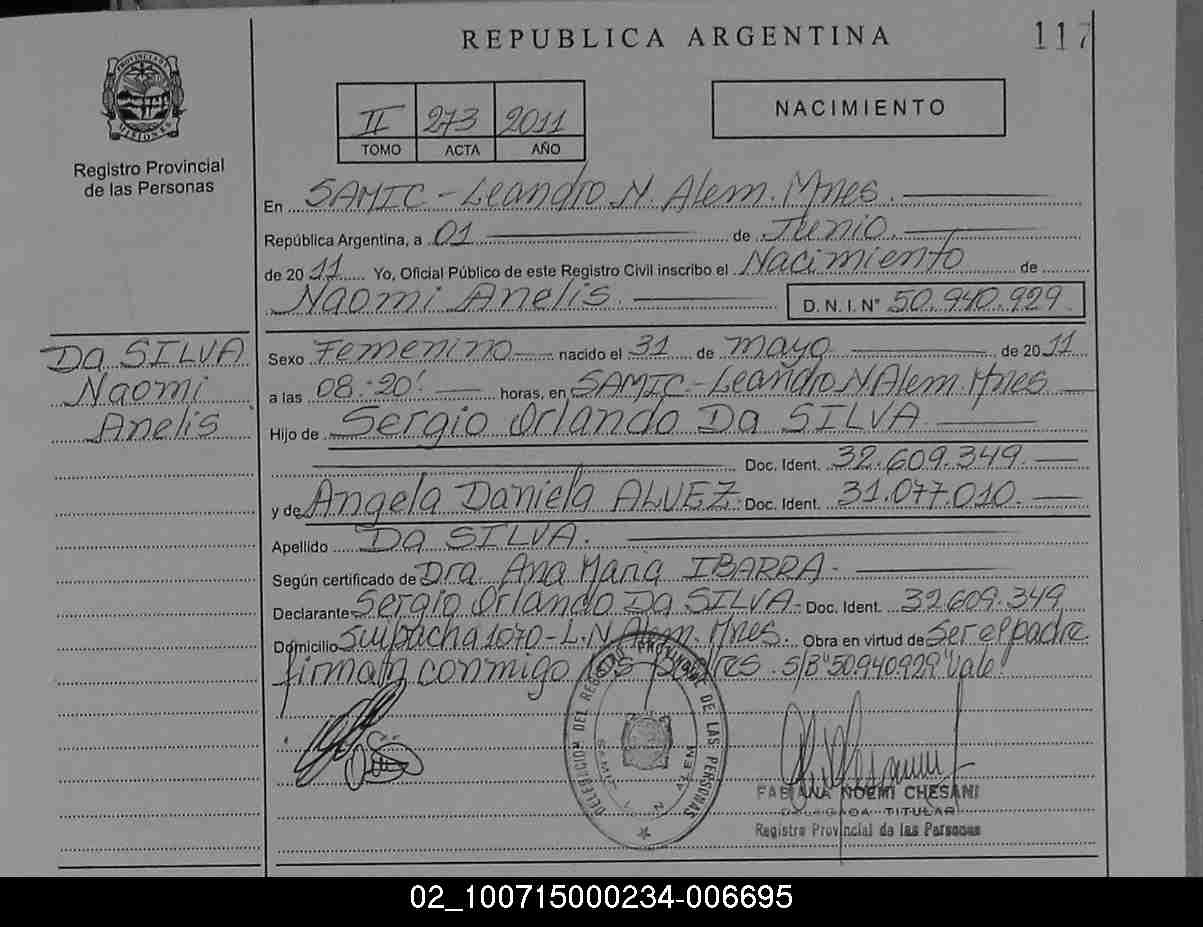 REPUBLICA ARGENTINA
117
PROVINCIA DE MISIONES
Registro Provincial
de las Personas
II 273 2011
TOMO ACTA AÑO
NACIMIENTO
En SAMIC - Leandro N. Alem. Mnes.
República Argentina, a 01 de Junio
de 2011 Yo, Oficial Público de este Registro Civil inscribo el Nacimiento de
Naomi Anelis. D. N. I. N° 50.940.929
DA SILVA
Naomi
Anelis
Sexo Femenino nacido el 31 de mayo de 2011
a las 08:20' horas, en SAMIC - Leandro N Alem. Mnes
Hijo de Sergio Orlando Da SILVA
Doc. Ident. 32.609.349.
y de Angela Daniela ALVEZ Doc. Ident. 31.077.010.
Apellido Da SILVA.
Según certificado de Dra. Ana Maria IBARRA
Declarante Sergio Orlando Da SILVA - Doc. Ident. 32609.349
Domicilio Suipacha 1070 - L.N. Alem. Mnes. Obra en virtud de Ser el padre
firma conmigo los S/B "50.940.929" Vale
DELEGACION DEL REGISTRO PROVINCIAL DE LAS PERSONAS
ALEM
FABIANA NOEMI CHESANI
DELEGADA TITULAR
Registro Provincial de las Personas
02_100715000234-006695